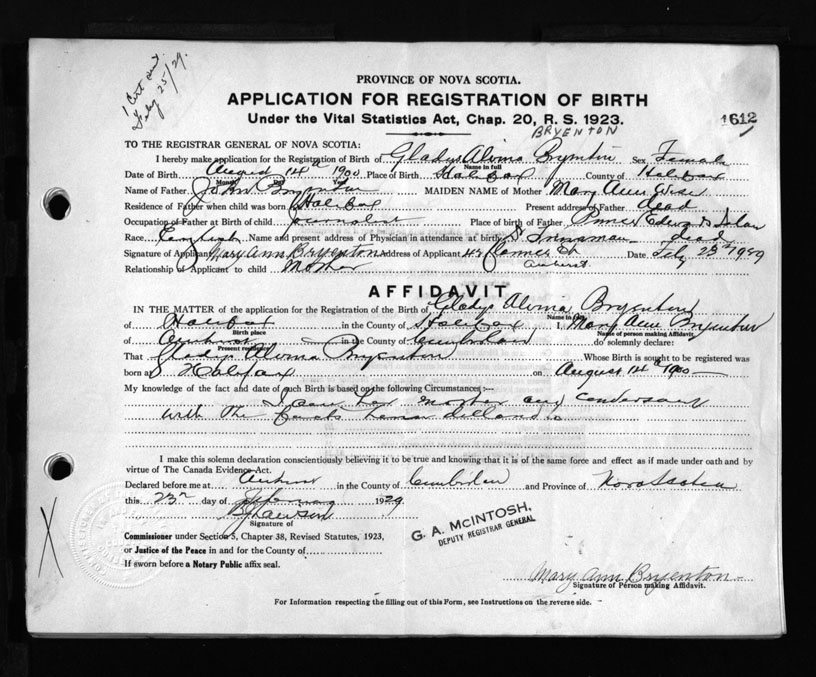 1 Cert sent
Feby 25/29.
PROVINCE OF NOVA SCOTIA.
APPLICATION FOR REGISTRATION OF BIRTH
Under the Vital Statistics Act, Chap. 20, R. S. 1923.
1612
BRYENTON
TO THE REGISTRAR GENERAL OF NOVA SCOTIA:
I hereby make application for the Registration of Birth of Gladys Alvina Bryenton Sex Female
Name in full
Date of Birth August 14th 1900 Place of Birth Halifax County of Halifax
Month
Name of Father John Bryenton MAIDEN NAME of Mother Mary Ann Wise
Residence of Father when child was born Halifax Present address of Father dead
Occupation of Father at Birth of child journalist Place of birth of Father Prince Edward Island
Race English Name and present address of Physician in attendance at birth dead
Signature of Applicant Mary Ann Bryenton Address of Applicant St Date Feby 23rd 1929
Amherst
Relationship of Applicant to child Mother
AFFIDAVIT
IN THE MATTER of the application for the Registration of the Birth of Gladys Alvina Bryenton
Name in full
of Halifax in the County of Halifax I, Mary Ann Bryenton
Birth place
Name of person making Affidavit
of Amherst in the County of Cumberland do solemnly declare:
Present residence
That Gladys Alvina Bryenton Whose Birth is sought to be registered was
born at Halifax on August 14th 1900
My knowledge of the fact and date of such Birth is based on the following Circumstances:—
I am her mother and conversant
with the facts herein
I make this solemn declaration conscientiously believing it to be true and knowing that it is of the same force and effect as if made under oath and by
virtue of The Canada Evidence Act.
Declared before me at Amherst in the County of Cumberland and Province of Nova Scotia
this 23rd day of February 1929
Signature of
Commissioner under Section 5, Chapter 38, Revised Statutes, 1923,
or Justice of the Peace in and for the County of
If sworn before a Notary Public affix seal.
G. A. McINTOSH,
DEPUTY REGISTRAR GENERAL
Mary Ann Bryenton
Signature of Person making Affidavit.
For Information respecting the filling out of this Form, see Instructions on the reverse side.
X